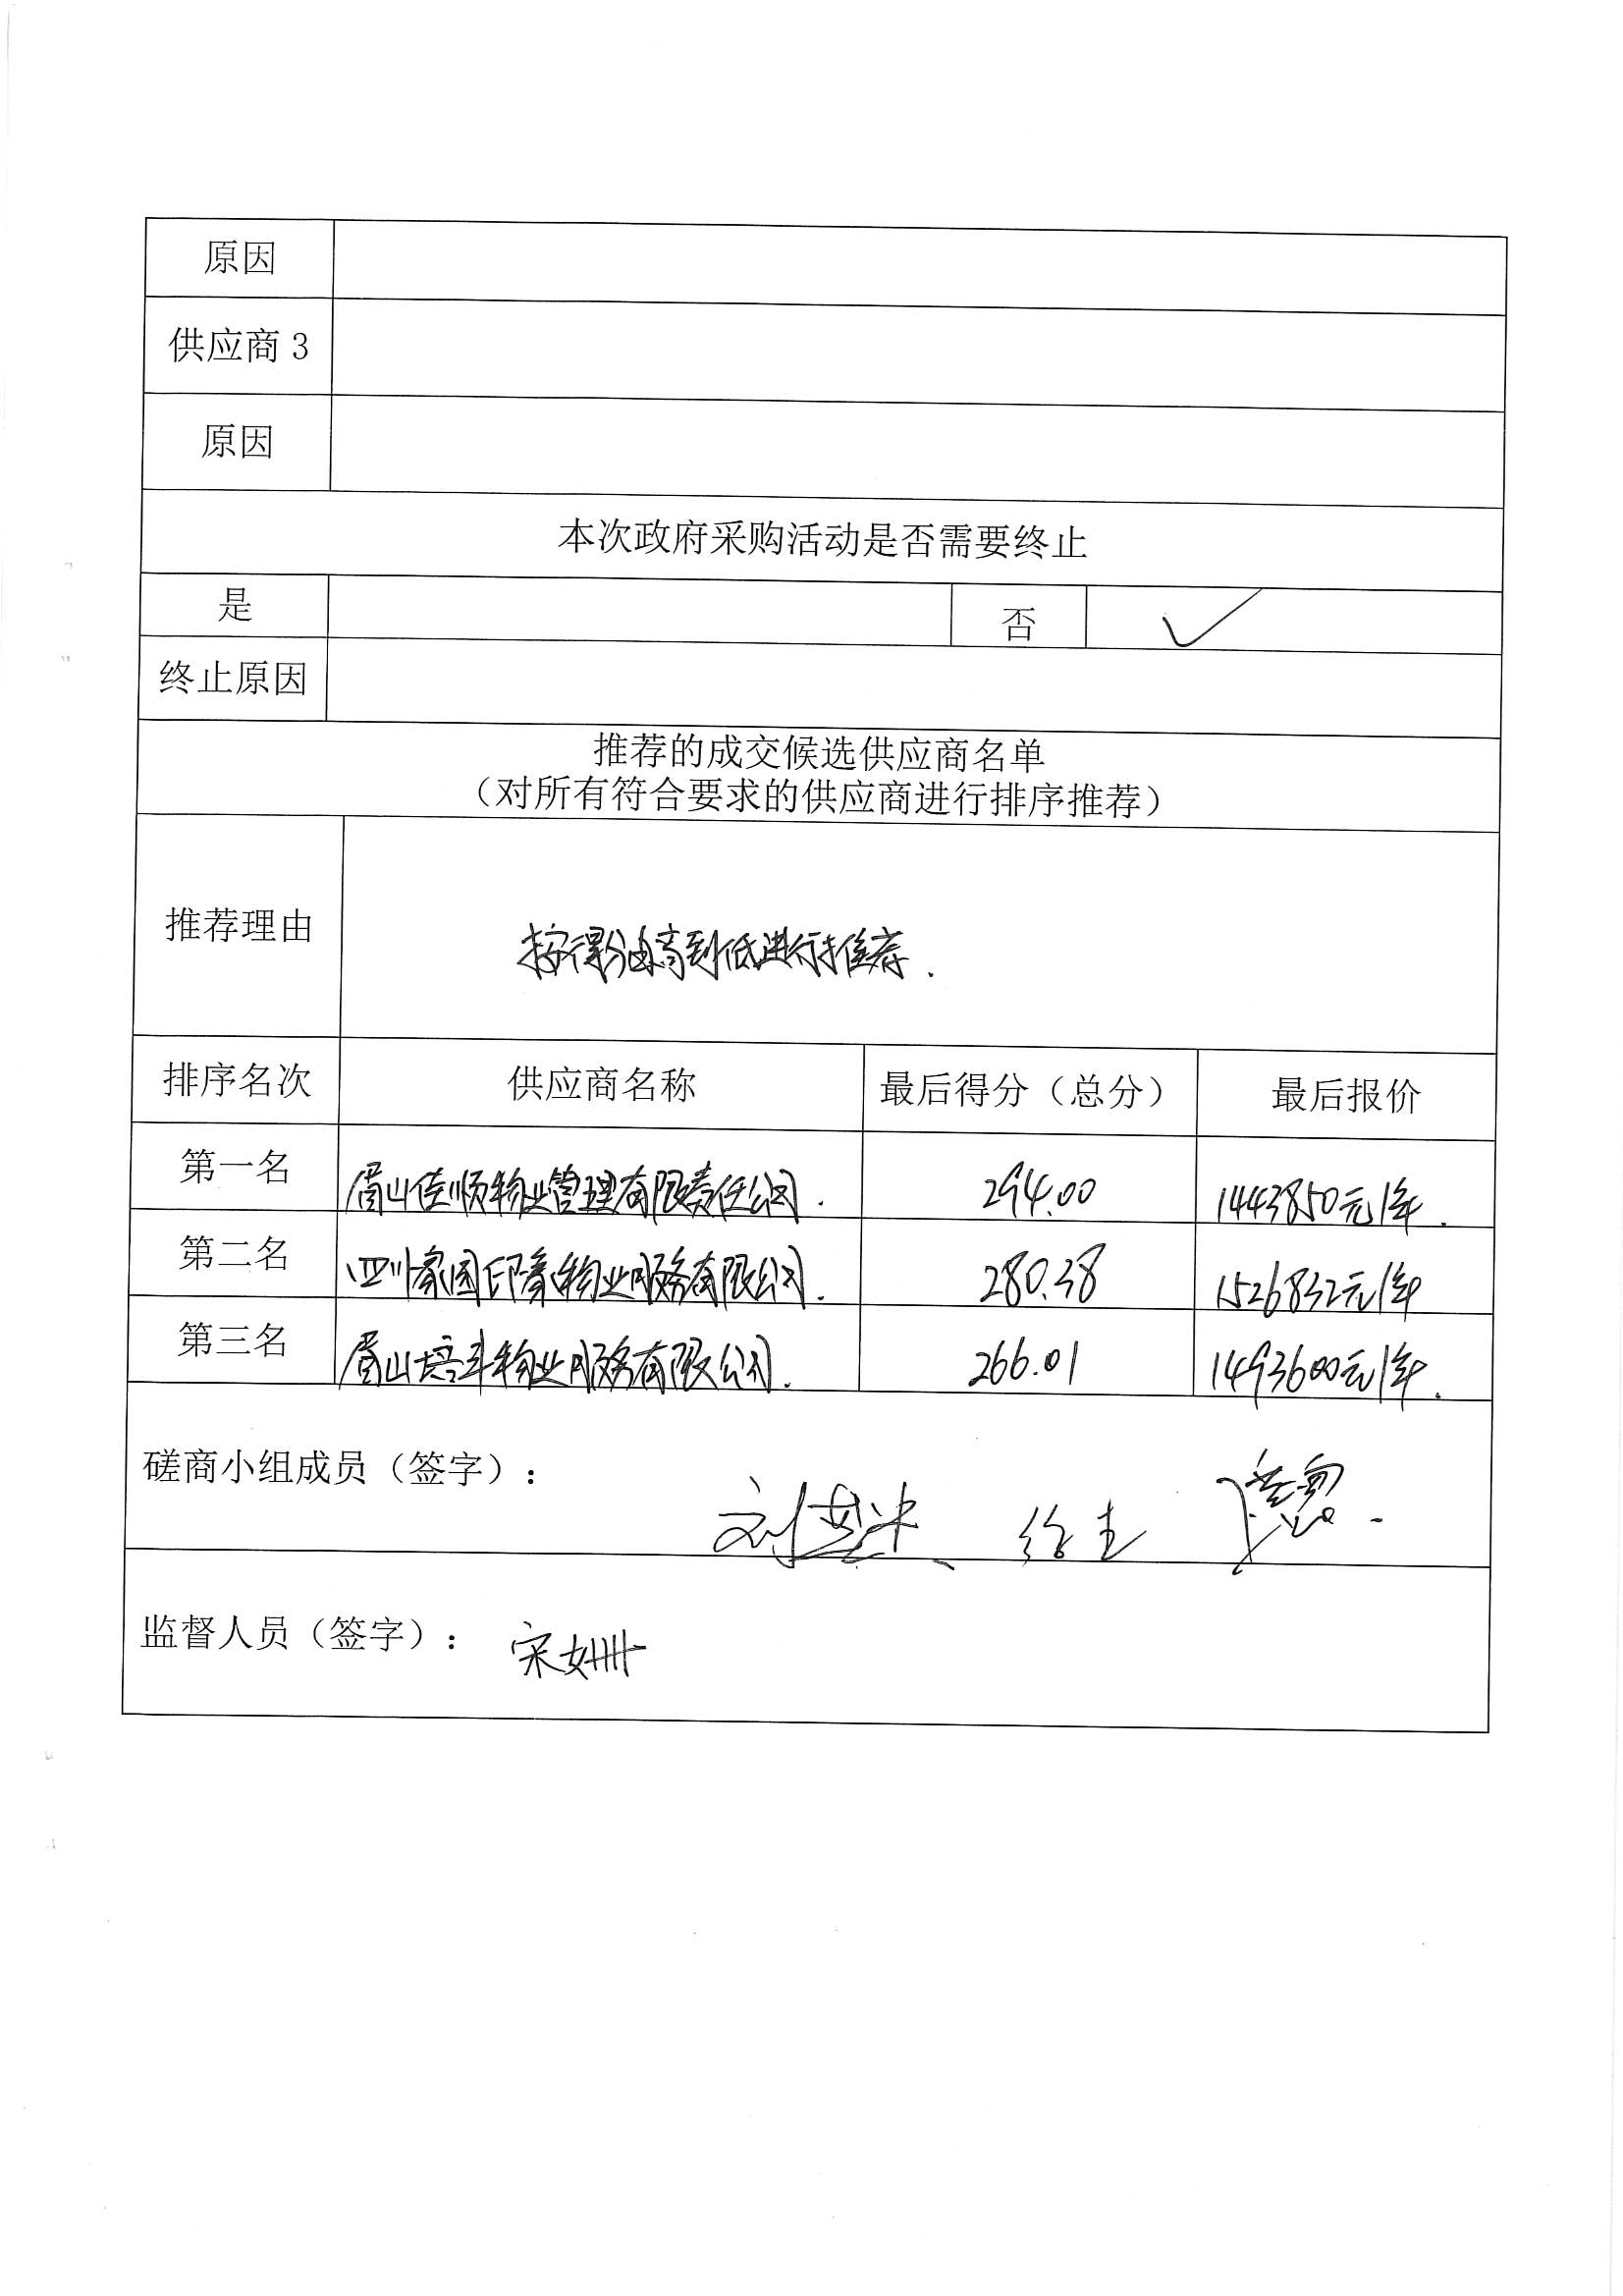 原因
供应商 3
原因
本次政府采购活动是否需要终止
是 否 ✓
终止原因
推荐的成交候选供应商名单
（对所有符合要求的供应商进行排序推荐）
推荐理由 按得分由高到低进行推荐.
排序名次 供应商名称 最后得分（总分） 最后报价
第一名 眉山佳顺物业管理有限责任公司. 294.00 1443850元/年.
第二名 四川家园印象物业服务有限公司. 280.38 1526832元/年
第三名 眉山培斗物业服务有限公司. 266.01 1493600元/年.
磋商小组成员（签字）：
监督人员（签字）： 宋姗